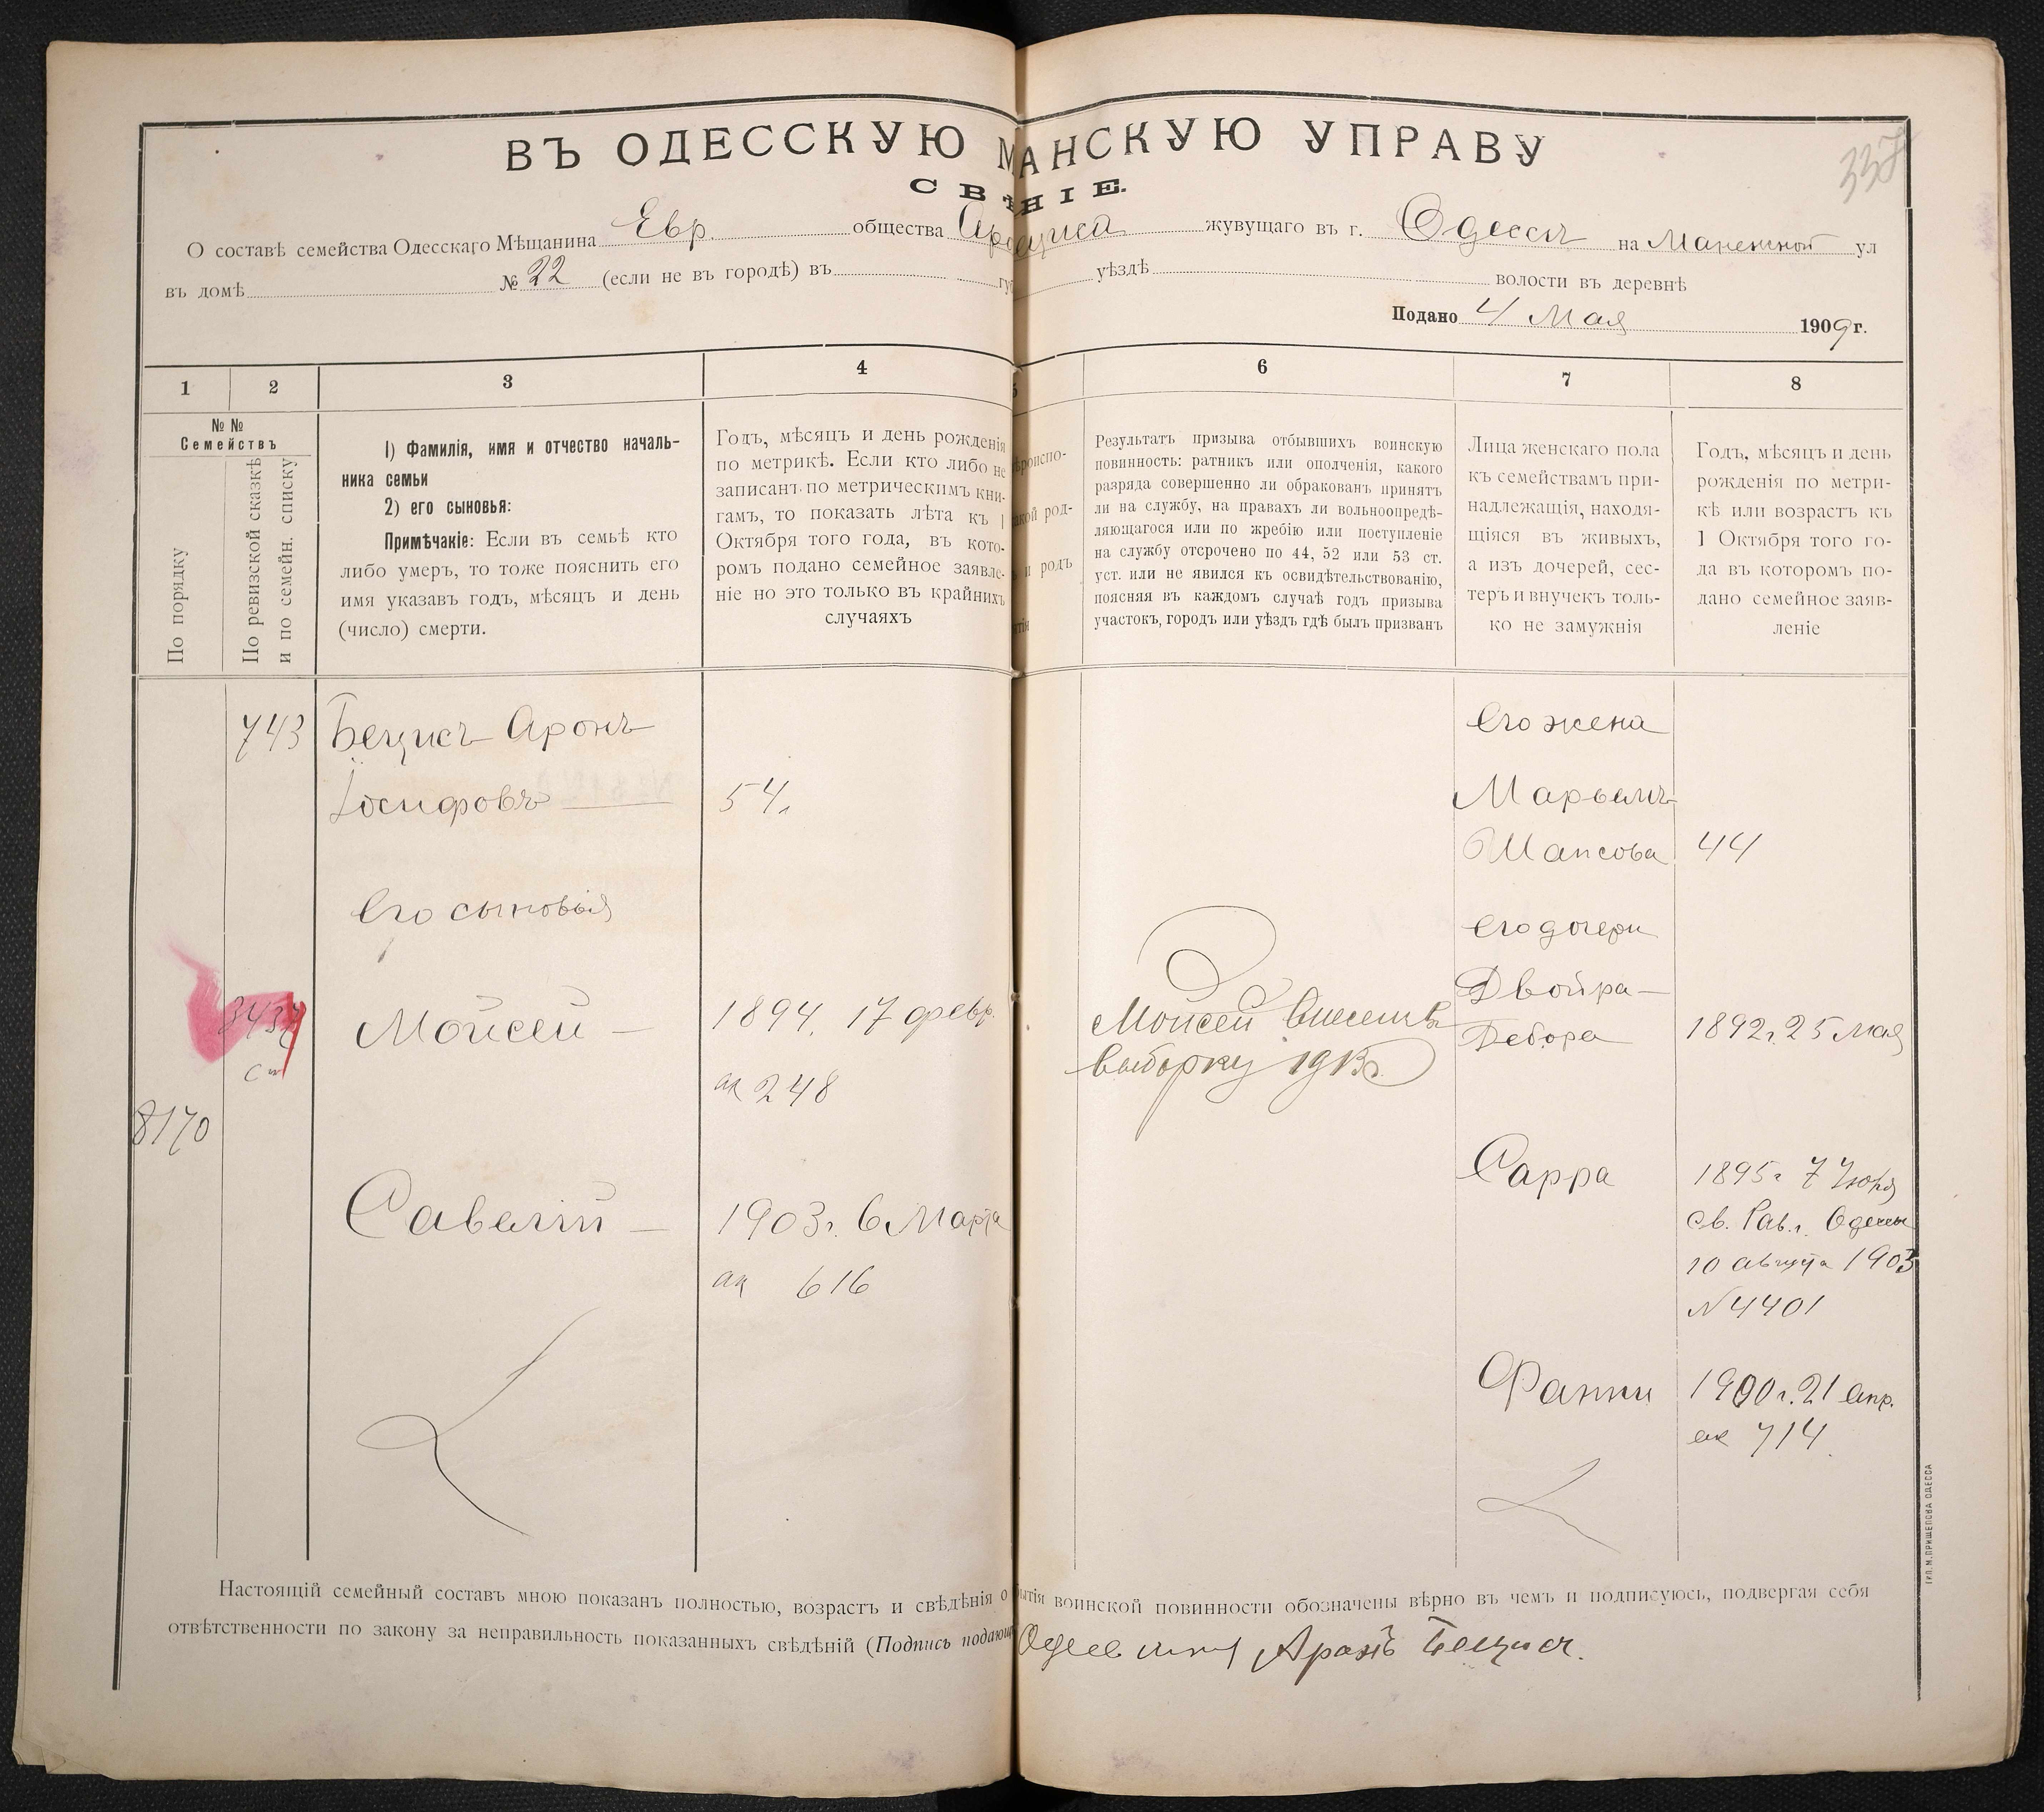 337
ВЪ ОДЕССКУЮ М АНСКУЮ УПРАВУ
СВѢ НІЕ.
О составѣ семейства Одесскаго Мѣщанина Евр. общества жувущаго въ г. Одессѣ на Манежной ул
въ домѣ № 22 (если не въ городѣ) въ гу уѣздѣ волости въ деревнѣ
Подано 4 Мая 1909 г.
1 2 3 4 5 6 7 8
№№ Семействъ
По порядку
По ревизской сказкѣ и по семейн. списку
1) Фамилія, имя и отчество началь-
ника семьи
2) его сыновья:
Примѣчаніе: Если въ семьѣ кто
либо умеръ, то тоже пояснить его
имя указавъ годъ, мѣсяцъ и день
(число) смерти.
Годъ, мѣсяцъ и день рожденія
по метрикѣ. Если кто либо не
записанъ по метрическимъ кни-
гамъ, то показать лѣта къ 1
Октября того года, въ кото-
ромъ подано семейное заявле-
ніе но это только въ крайнихъ
случаяхъ
ѣроиспо-
акой род-
и родъ
Результатъ призыва отбывшихъ воинскую
повинность: ратникъ или ополченія, какого
разряда совершенно ли обракованъ принятъ
ли на службу, на правахъ ли вольноопредѣ-
ляющагося или по жребію или поступленіе
на службу отсрочено по 44, 52 или 53 ст.
уст. или не явился къ освидѣтельствованію,
поясняя въ каждомъ случаѣ годъ призыва
участокъ, городъ или уѣздъ гдѣ былъ призванъ
Лица женскаго пола
къ семействамъ при-
надлежащія, находя-
щіяся въ живыхъ,
а изъ дочерей, сес-
теръ и внучекъ толь-
ко не замужнія
Годъ, мѣсяцъ и день
рожденія по метри-
кѣ или возрастъ къ
1 Октября того го-
да въ которомъ по-
дано семейное заяв-
леніе
743 Бецисъ Аронъ
Іосифовъ 54.
его сыновья
Мойсей 1894. 17 февр.
ак 248
8170
Савелій 1903г. 6 Марта
ак 616
Мойсей внесенъ въ
выборку 1913г.
его жена
Марьемъ
44
его дочери
Двойра-
Дебора 1892г. 25 Мая
Сарра 1895г 7 Іюня
св. Рав. г. Одессы
10 августа 1903
N4401
Фанни 1900г. 21 апр.
ак 714
Настоящій семейный составъ мною показанъ полностью, возрастъ и свѣдѣнія о бытія воинской повинности обозначены вѣрно въ чемъ и подписуюсь, подвергая себя
отвѣтственности по закону за неправильность показанныхъ свѣдѣній (Подпись подающ Аронъ Бецисъ.
ТИП. М. ПРИЩЕПОВА ОДЕССА